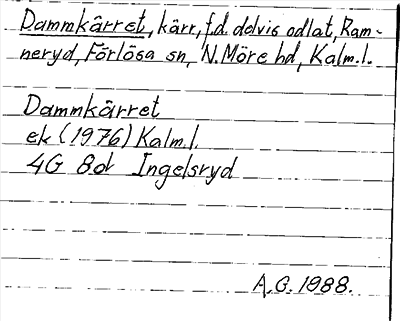 Dammkärret, kärr, f.d. delvis odlat, Ram-
neryd, Förlösa sn, N. Möre hd, Kalm.l.
Dammkärret
ek (1976) Kalm.l.
4G 8d Ingelsryd
A.G. 1988.